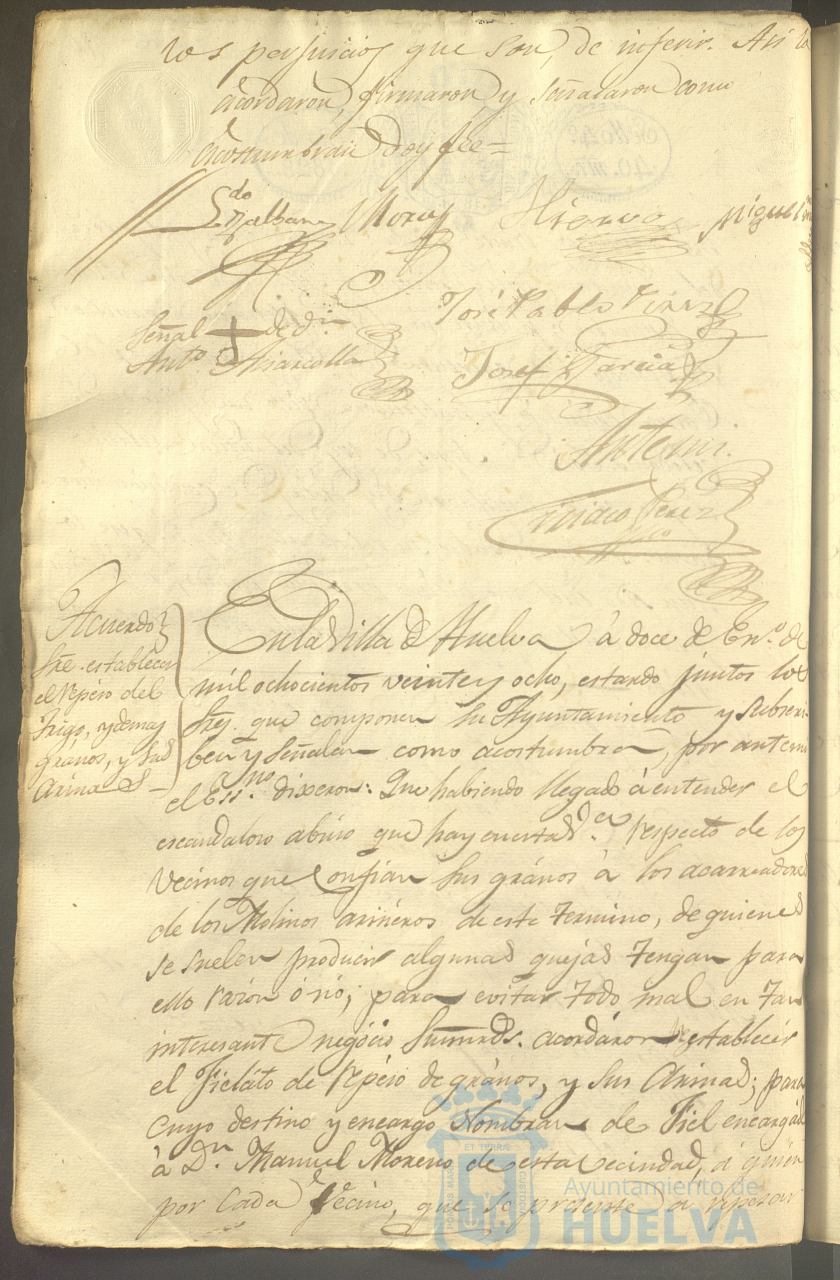 los perjuicios que son de inferir. Asi lo
acordaron, firmaron y señalaron como
acostumbran Doy fee =
Ldo
Hierro Miguel
Señal + de Dn
Anto
José Pablo Perez
Josef Garcia
Antemi.
Ciriaco Perez
Acuerdo
Sre. establecer
el repéso del
Trigo, y demas
grános, y sus
Arinas
En la Villa de Huelva á doce de Eno. de
mil ochocientos veinte y ocho, estando juntos los
Sres. que componen su Ayuntamiento y subscri-
ben y señalan como acostumbran, por antemi
el Essno. dixeron: Que habiendo llegado á entender el
escandaloso abúso que hay en esta respecto de los
Vecinos que confian sus grános á los acarreadores
de los Molinos arinéros de este termino, de quienes
se suelen producir algunas quejas tengan para
ello razón ó nó; para evitar todo mal en tan
interesante negócio Sumrds. acordáron establecér
el Fieláto de repéso de grános, y sus Arinas; para
cuyo destino y encargo Nombran de Fiel encargádo
á Dn. Manuel Moreno de esta vecindad, á quien
por cada Vecino, que se presente á repesar
Ayuntamiento de
HUELVA